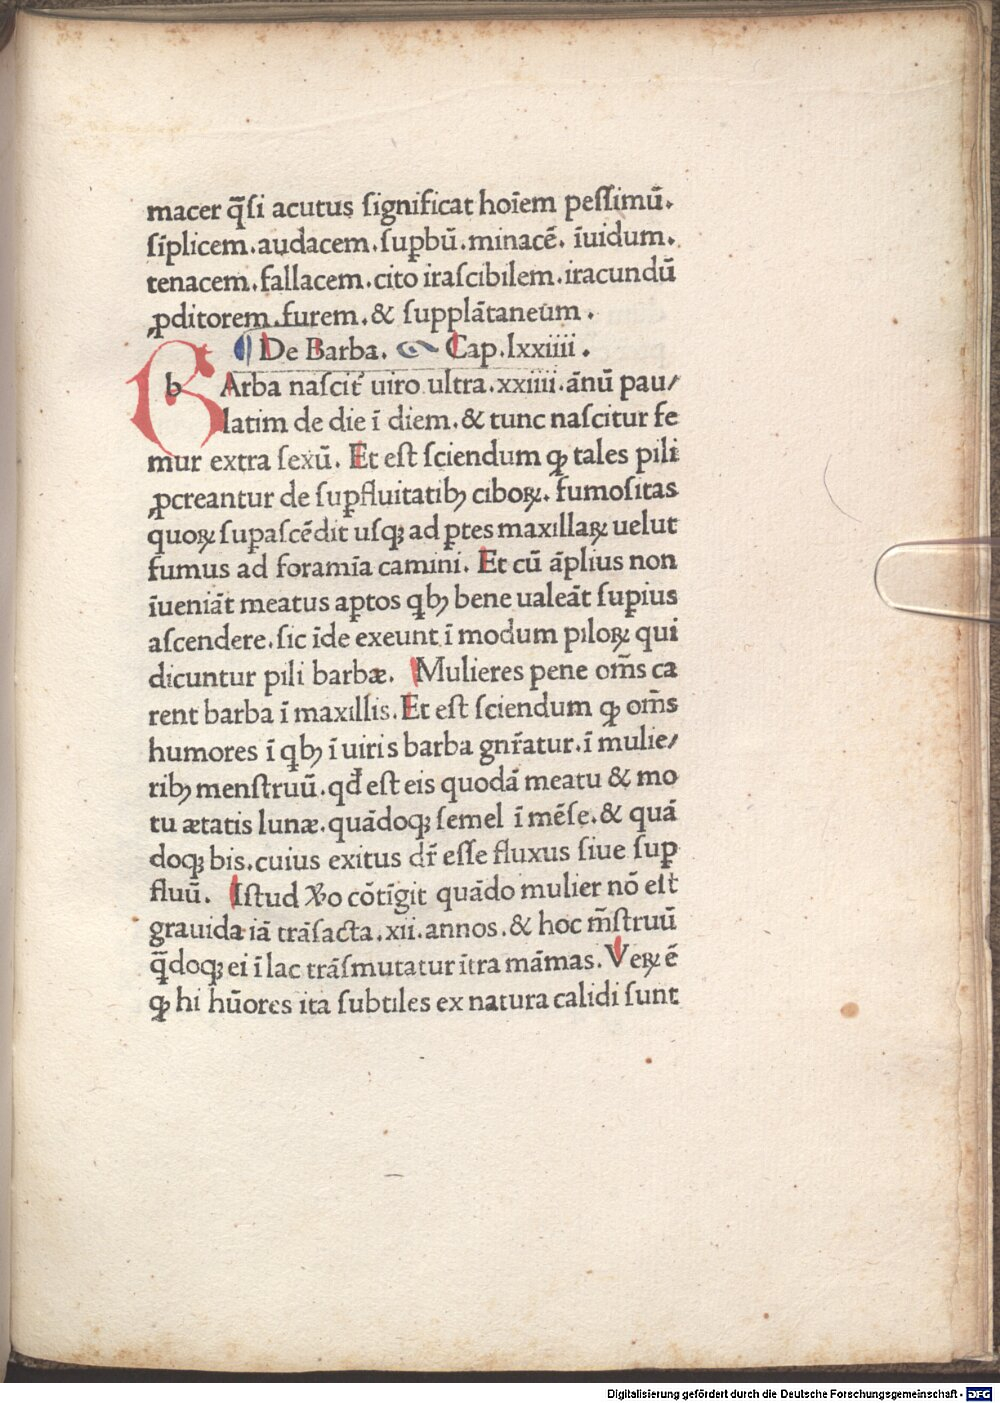 macer q̄si acutus ſignificat hoīem peſſimū.
ſīplicem.audacem.ſuꝑbū.minacē. īuidum.
tenacem.fallacem.cito iraſcibilem.iracundū
ꝓditorem.furem.& ſupplātaneum.
¶ De Barba. Cap.lxxiiii.
b Arba naſcit᷑ uiro ultra.xxiiii.ānū pau/
latim de die ī diem.& tunc naſcitur fe
mur extra ſexū. Et eſt ſciendum ꝙ tales pili
ꝓcreantur de ſuꝑfluitatibꝫ ciboꝝ. fumoſitas
quoꝝ ſupaſcēdit uſqꝫ ad ꝑtes maxillaꝝ uelut
fumus ad foramīa camini. Et cū āplius non
īueniāt meatus aptos qbꝫ bene ualeāt ſuꝑius
aſcendere.ſic īde exeunt ī modum piloꝝ qui
dicuntur pili barbæ. Mulieres pene om̄s ca
rent barba ī maxillis.Et eſt ſciendum ꝙ om̄s
humores ī qbꝫ ī uiris barba gnr̄atur.ī mulie/
ribꝫ menſtruū.qd̄ eſt eis quodā meatu & mo
tu ætatis lunæ.quādoqꝫ ſemel ī mēſe.& quā
doqꝫ bis.cuius exitus dr̄ eſſe fluxus ſiue ſuꝑ
fluū. Iſtud ꝟo cōtīgit quādo mulier nō eſt
grauida iā trāſacta.xii.annos.& hoc m̄ſtruū
q̄doqꝫ ei ī lac trāſmutatur ītra māmas. Veꝝ ē
ꝙ hi hūores ita ſubtiles ex natura calidi ſunt
Digitalisierung gefördert durch die Deutsche Forschungsgemeinschaft - DFG